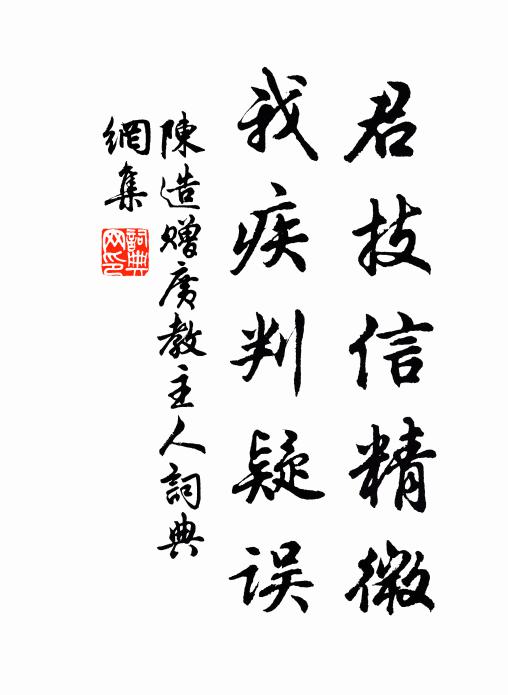 君技信精微
我疾判疑误
陳造贈廣教主人詞典
網集
詞典
网印